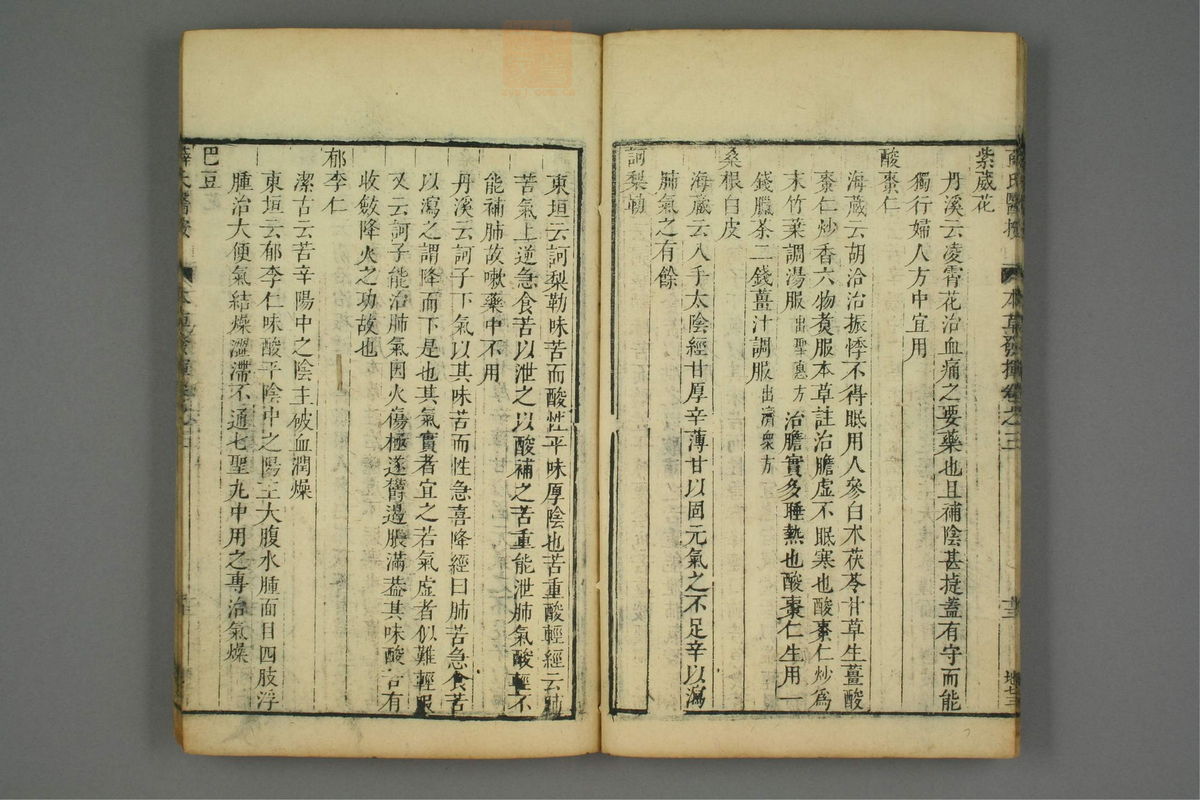 薛氏醫按 本草發揮卷之三
紫葳花
丹溪云凌霄花治血痛之要藥也且補陰甚㨗蓋有守而能
獨行婦人方中宜用
酸棗仁
海藏云胡洽治振悸不得眠用人參白朮茯苓甘草生薑酸
棗仁炒香六物煑服本草註治膽虛不眠寒也酸棗仁炒爲
末竹葉調湯服出聖惠方治膽實多睡熱也酸棗仁生用一
錢臘茶二錢薑汁調服出濟衆方
桑根白皮
海藏云入手太陰經甘厚辛薄甘以固元氣之不足辛以瀉
肺氣之有餘
訶梨勒
東垣云訶梨勒味苦而酸性平味厚陰也苦重酸輕經云肺
苦氣上逆急食苦以泄之以酸補之苦重能泄肺氣酸輕不
能補肺故嗽藥中不用
丹溪云訶子下氣以其味苦而性急喜降經曰肺苦急食苦
以瀉之謂降而下是也其氣實者宜之若氣虛者似難輕服
又云訶子能治肺氣因火傷極遂欝遏脹滿蓋其味酸苦有
收斂降火之功故也
郁李仁
潔古云苦辛陽中之陰主破血潤燥
東垣云郁李仁味酸平陰中之陽主大腹水腫面目四肢浮
腫治大便氣結燥澀滯不通七聖丸中用之專治氣燥
巴豆
薛氏醫按 本草發揮卷之三